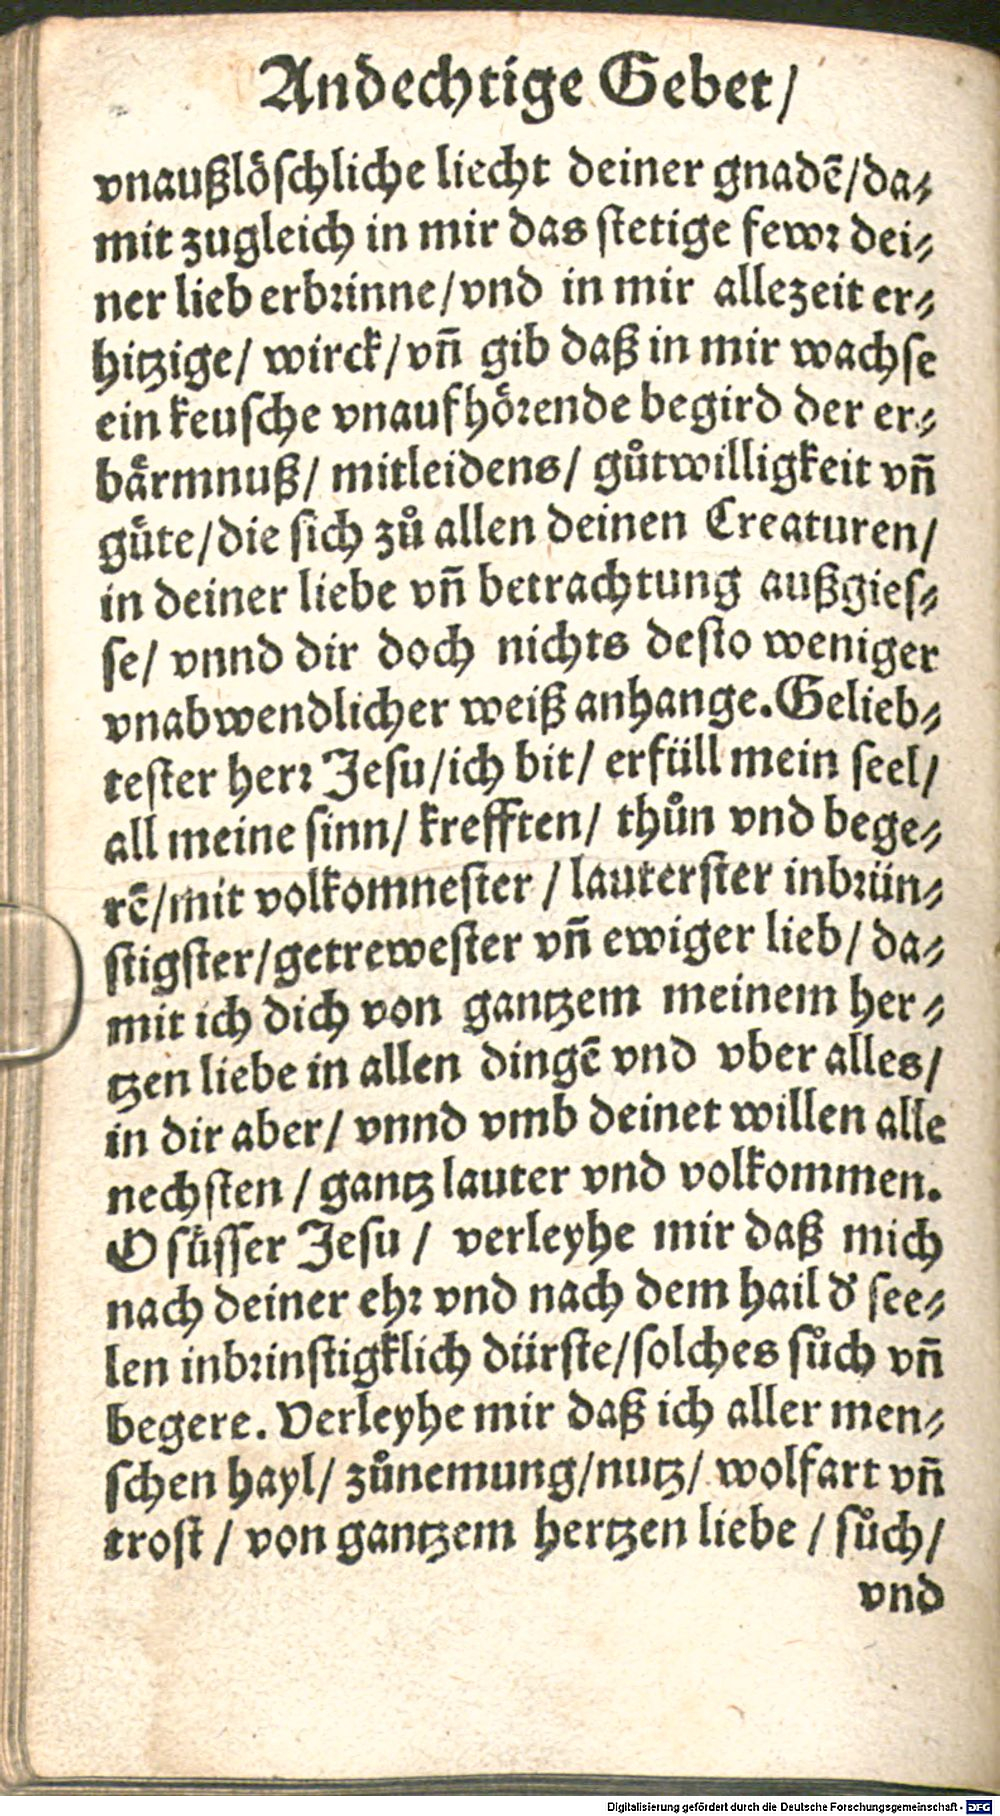 Andechtige Gebet/
vnaußlöſchliche liecht deiner gnadẽ/da⸗
mit zugleich in mir das ſtetige fewꝛ dei⸗
ner lieb erbꝛinne/vnd in mir allezeit er⸗
hitzige/ wirck/vñ gib daß in mir wachſe
ein keuſche vnaufhoͤꝛende begird der er⸗
baͤrmnuß/ mitleidens/ guͦtwilligkeit vñ
guͤte/die ſich zuͦ allen deinen Creaturen/
in deiner liebe vñ betrachtung außgieſ⸗
ſe/ vnnd dir doch nichts deſto weniger
vnabwendlicher weiß anhange. Gelieb⸗
teſter herꝛ Jeſu/ich bit/ erfüll mein ſeel/
all meine ſinn/ krefften/ thuͦn vnd bege⸗
rẽ/mit volkomneſter / lauterſter inbꝛün⸗
ſtigſter/getreweſter vñ ewiger lieb/ da⸗
mit ich dich von gantzem meinem her⸗
tzen liebe in allen dingẽ vnd vber alles/
in dir aber/ vnnd vmb deinet willen alle
nechſten / gantz lauter vnd volkommen.
O ſuͤſſer Jeſu / verleyhe mir daß mich
nach deiner ehꝛ vnd nach dem hail dˀ ſee⸗
len inbꝛinſtigklich dürſte/ſolches ſuͦch vñ
begere. Verleyhe mir daß ich aller men⸗
ſchen hayl/ zuͦnemung/nutz/ wolfart vñ
troſt / von gantzem hertzen liebe / ſuͦch/
vnd
Digitalisierung gefördert durch die Deutsche Forschungsgemeinschaft - DFG